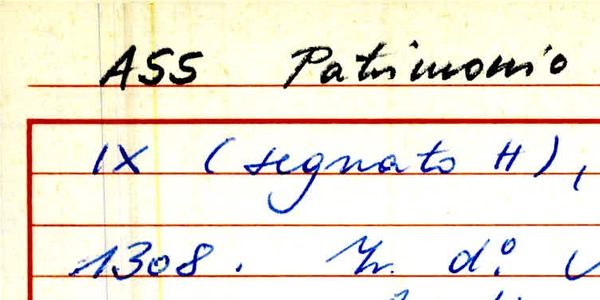 ASS Patrimonio
IX (segnato H),
1308. Tr. di